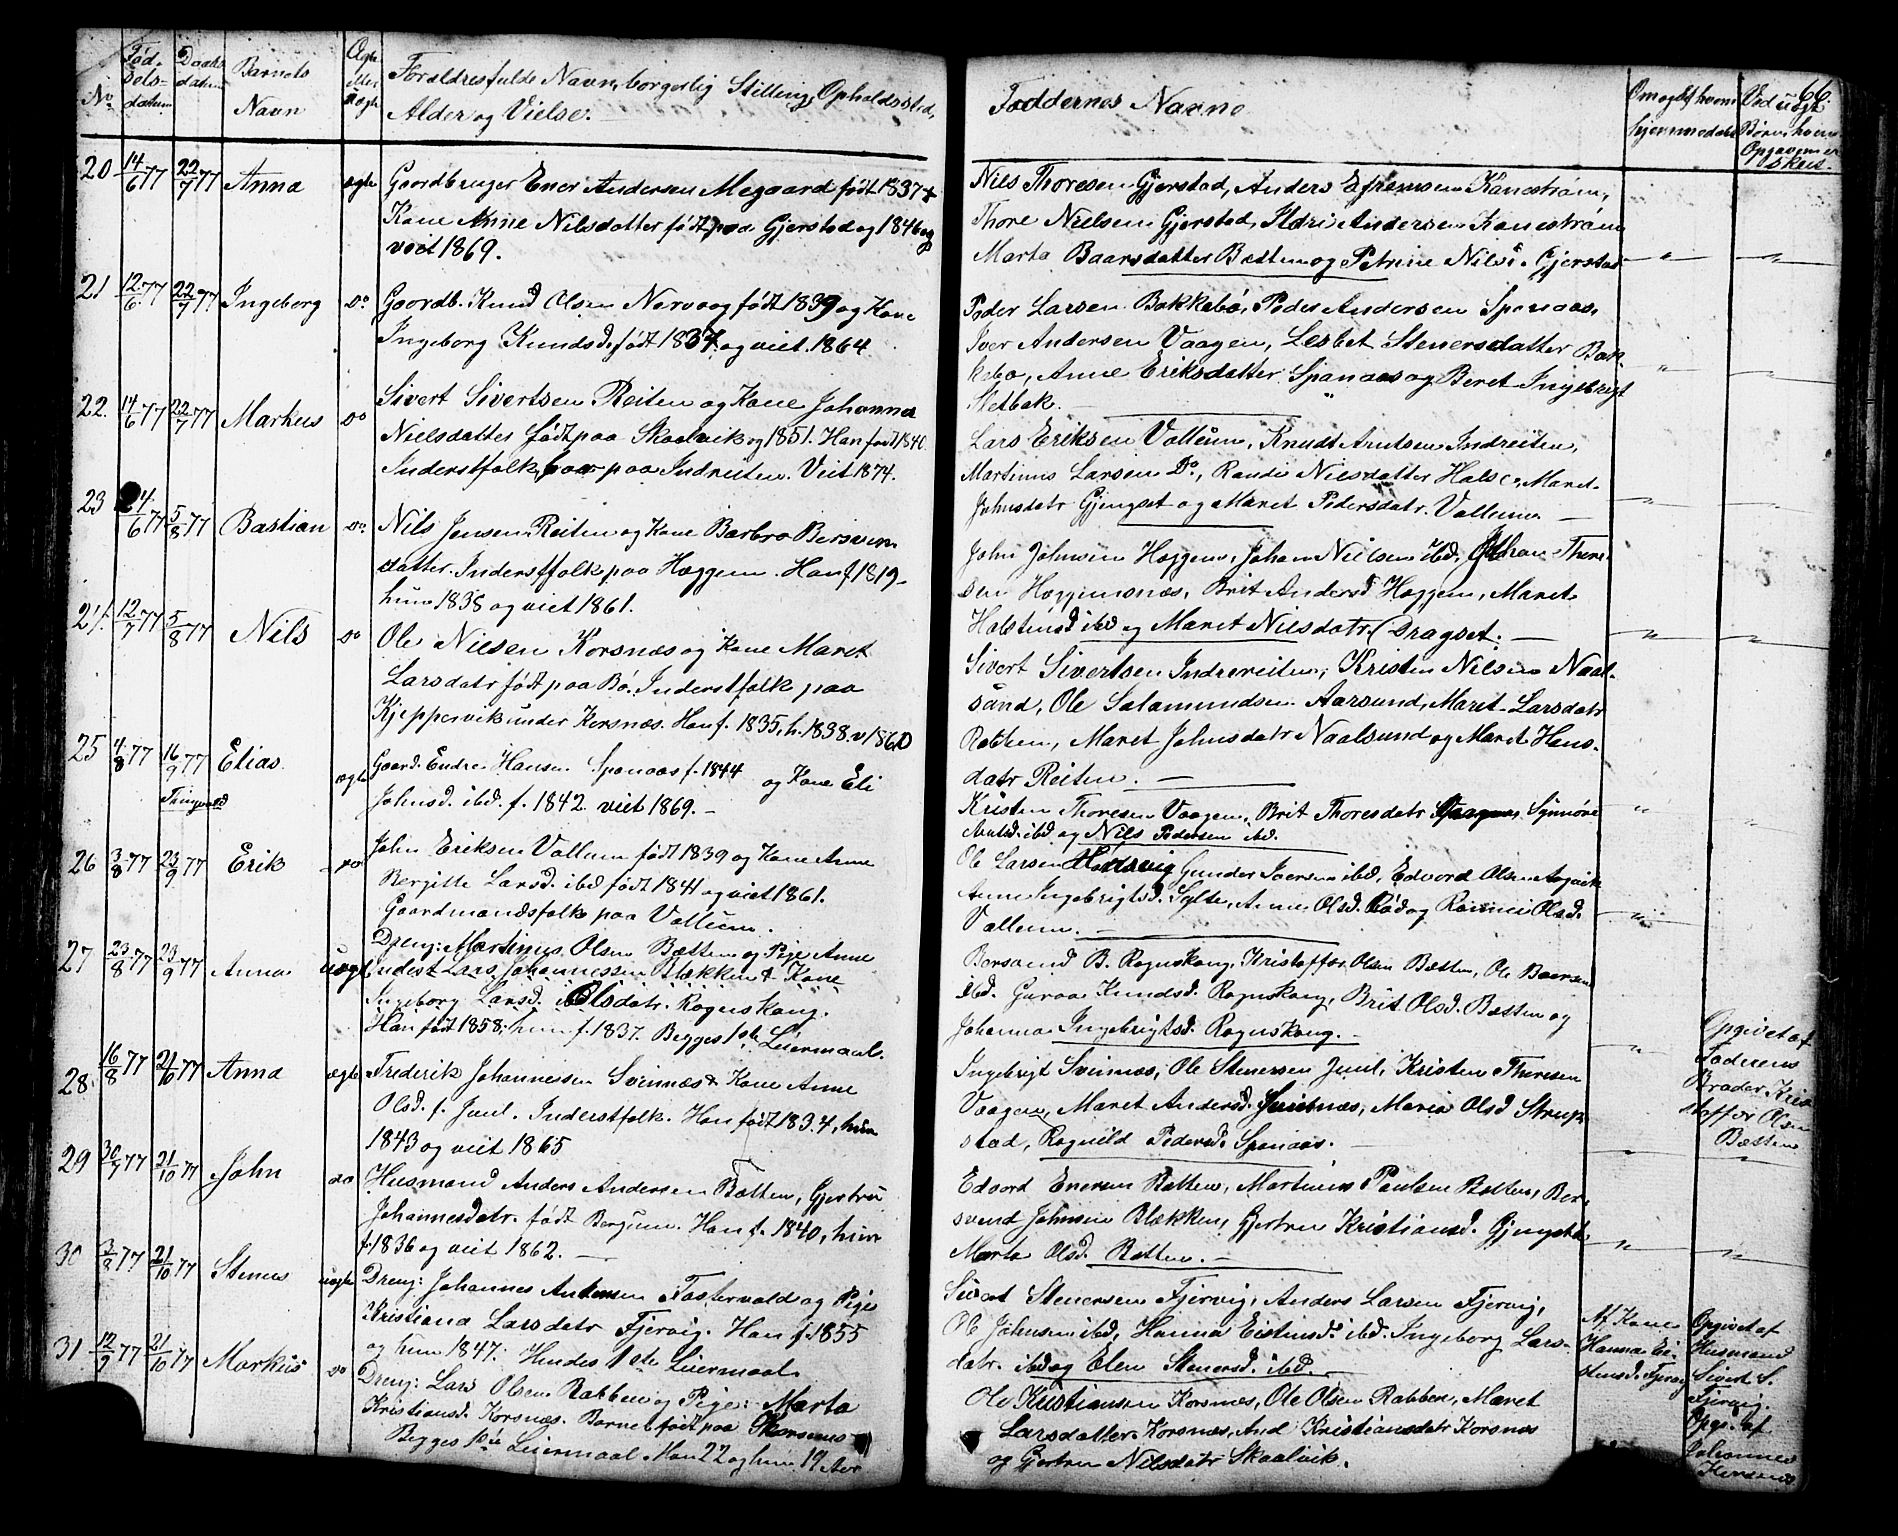 66.
No. Fød-
sels-
datum
Daabs
datum
Barnets
Navn
Ægte
eller
uægte
Forældres fulde Navn, borgerlig Stilling, Opholdssted,
Alder og Vielse.
Faddernes Navne
Om og af hvem
hjemmedøbt
Ved uægte
Børn, hvem
Opgaven er
skeet.
20 14/6 77 22/7 77 Anna ægte Gaardbruger Ener Andersen Megaard født 1837 &
Kone Anne Nilsdatter født paa Gjerstad og 1846 og
viet 1869.
Nils Thoresen Gjerstad, Anders Efremsen Kanestrøm,
Thore Nielsen Gjerstad, Ildri Andersen Kanestrøm
Marta Baarsdatter Bætten og Petrine Nilsd. Gjerstad
21 12/6 77 22/7 77 Ingeborg Do Gaardb. Knud Olsen Norvaag født 1839 og Kone
Ingeborg Knudsd. født 1837 og viet 1864
Peder Larsen Bakkebø, Peder Andersen Spanaas,
Iver Andersen Vaagen, Lesbet Stenersdatter Bak
kebø, Anne Eriksdatter Spanaas og Beret Ingebrigt
Sletbak.
22. 14/6 77 22/7 77 Markus Do Sivert Sivertsen Reiten og Kone Johanna
Nielsdatter født paa Skaalvik og 1851. Han født 1846
Inderstfolk paa Indreiten. Viet 1874.
Lars Eriksen Vullum, Knudt Arntsen Indreiten,
Martinus Larsen Do, Randi Nilsdatter Halse, Maret
Johnsdatr Gjengset og Maret Pedersdatr. Vullum
23 24/6 77 5/8 77 Bastian Do Nils Jensen Reiten og Kone Barbro Bersven
datter. Inderstfolk paa Hæggem. Han f. 1819
hun 1838 og viet 1861.
John Johnsen Hoggem, Johan Nielsen ibd. Johan Thore
sen Heggemsnes, Brit Andersd Hoggem, Maret
Halstensd ibd og Maret Nilsdatr. Dragset.
24. 12/7 77 5/8 77 Nils Do Ole Nielsen Korsnæs og Kone Maret
Larsdatr født paa Bø. Inderstfolk paa
Kjeppervik under Korsnæs. Han f. 1835, h. 1838. v 1860
Sivert Sivertsen Indrereiten, Kristen Nilsen Naal-
sund, Ole Salamundsen Aarsund, Maret Larsdatr
Rabben, Maret Johnsdatr Naalsund og Maret Hans-
datr Reiten.
25 4/8 77 16/9 77 Elias ægte Gaard. Endre Hansen Spanaas f. 1844 og Kone Eli
Tingvold
Johnsd. ibd. f. 1842 viet 1869.
Kristen Thoresen Vaagen, Brit Thoresdatr Vaagen, Synnøve
Arntsd. ibd og Nils Pedersen ibd.
26 3/8 77 23/9 77 Erik do John Eriksen Vullum født 1839 og Kone Anne
Bergitte Larsd. ibd født 1841 og viet 1861.
Gaardmandsfolk paa Vullum.
Ole Larsen Hals Gunder Iversen ibd, Edvard Olsen Aasvik
Anne Ingebrigtsd. Sylte, Anne Olsd. Bø og Rannei Olsd.
Vullum.
27 23/8 77 23/9 77 Anna uægte Dreng: Martinus Olsen Bætten og Pige Anne
Lars Johannessen Blækken & Kone
Ingeborg Larsd. ibd. Olsdatr. Rognskaug.
Han født 1858, hun f. 1837. Begges 1ste Leiermaal.
Bersvend B. Rognskaug, Kristoffer Olsen Bætten, Ole Baarsen
ibd. Guroa Knudsd. Rognskaug, Brit Olsd. Bætten og
Johanna Ingebrigtsd. Rognskaug.
Opgivet af
Faderens
Broder Kris
toffer Olsen
Bætten
28. 16/8 77 21/10 77 Anna ægte Frederik Johannessen Svinnæs & Kone Anne
Olsd. f. Juul. Inderstfolk. Han født 1834, hun
1843 og viet 1865
Ingebrigt Svinnæs, Ole Stenersen Juul, Kristen Thoresen
Vaagen, Maret Andersd. Svinnæs, Maria Olsd Strup
stad, Ragnild Pedersd. Spanaas.
29 30/9 77 21/10 77 John do Husmand Anders Andersen Bætten, Gjertru
Johannesdatr. født Bergum. Han f. 1840, hun
f. 1836 og viet 1862.
Edvard Enersen Bætten, Martinus Paulsen Bætten, Ber
svend Johnsen Blækken, Gjertru Kristiansd. Gjengstø
Marta Olsd. Bætten.
30 3/8 77 21/10 77 Steners uægte Dreng: Johannes Antonsen Fastervold og Pige
Kristiana Larsdatr Fjervig. Han f. 1855
og hun 1847. Hendes 1ste Leiermaal
Sivert Stenersen Fjervig, Anders Larsen Fjervig,
Ole Johnsen ibd, Hanna Eistensd. ibd. Ingeborg Lars-
datr. ibd og Elen Stenersd. ibd.
Af Kone
Hanna Ei-
stensd. Fjervig
Opgivet af
Husmand
Sivert S.
Fjervig.
31. 12/9 77 21/10 77 Markus do Dreng: Lars Olsen Rabben og Pige: Marta
Kristiansd. Korsnæs. Barnet født paa Korsnæs
Begges 1ste Leiermaal. Han 22 og hun 19 Aar
Ole Kristiansen Korsnæs, Ole Olsen Rabben, Maret
Larsdatter Korsnæs, And Kristiansdatr Korsnæs
og Gjertru Nilsdatr Skaalvik.
Opgi. af
Johannes
Korsnæs